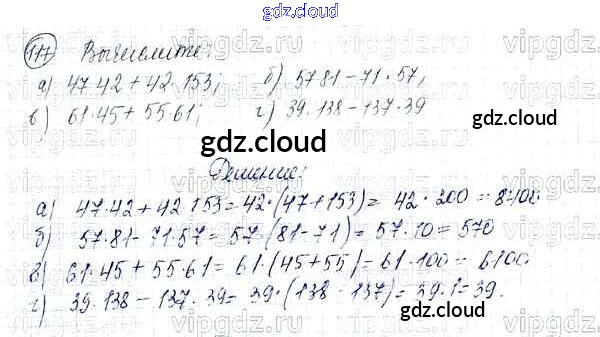 gdz.cloud
117 Вычислите:
а) 47·42 + 42·153; б) 57·81 − 71·57;
в) 61·45 + 55·61; г) 39·138 − 137·39
gdz.cloud
gdz.cloud
Решение:
а) 47·42 + 42·153 = 42·(47+153) = 42·200 = 8400
б) 57·81 − 71·57 = 57·(81−71) = 57·10 = 570
в) 61·45 + 55·61 = 61·(45+55) = 61·100 = 6100
г) 39·138 − 137·39 = 39·(138−137) = 39·1 = 39.
gdz.cloud
gdz.cloud